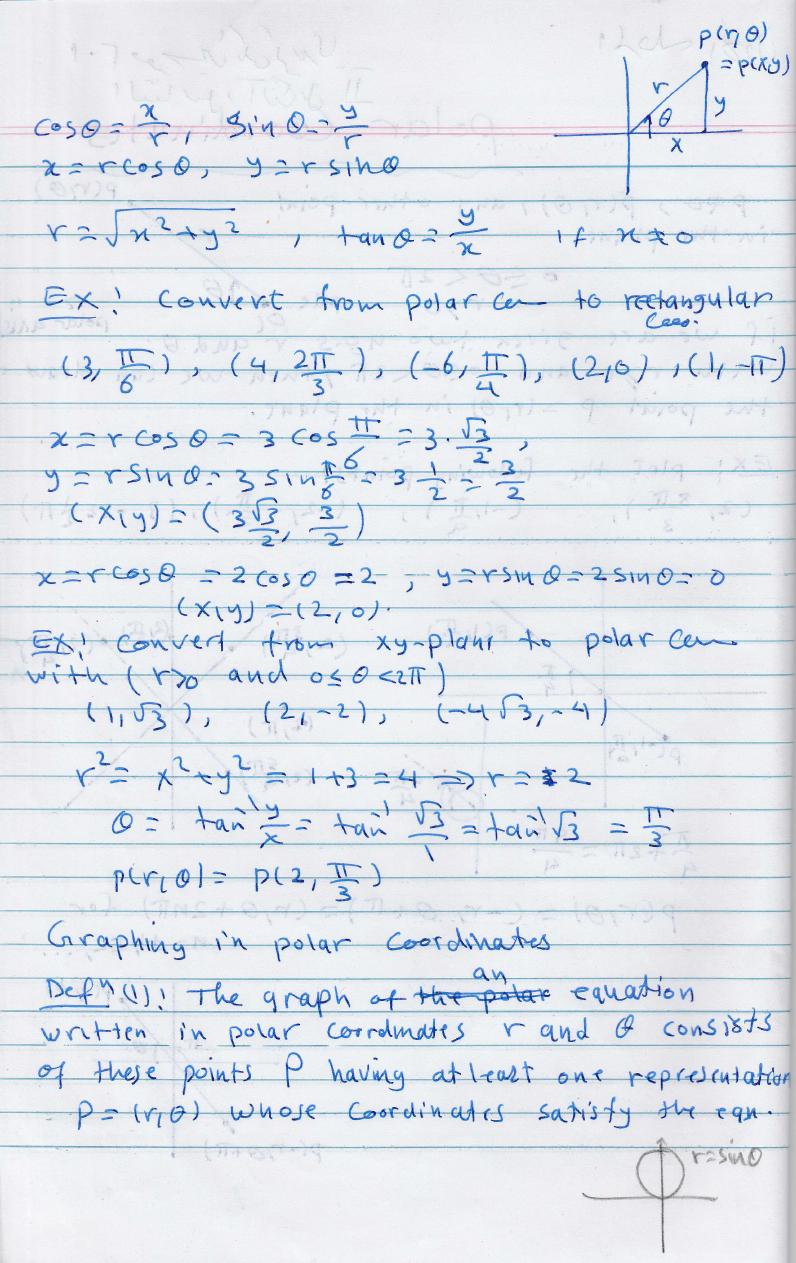 p(r,θ)
= p(x,y)
r
θ
y
x
cosθ = x/r, sinθ = y/r
x = r cosθ, y = r sinθ
r = √(x² + y²), tanθ = y/x if x ≠ 0
EX: Convert from polar to rectangular
(3, π/6), (4, 2π/3), (-6, π/4), (2,0), (1, -π)
x = r cosθ = 3 cos π/6 = 3·√3/2,
y = r sinθ = 3 sin π/6 = 3 1/2 = 3/2
(x,y) = (3√3/2, 3/2)
x = r cosθ = 2 cos0 = 2, y = r sinθ = 2 sin0 = 0
(x,y) = (2,0).
EX: Convert from xy-plane to polar
with (r>0 and 0≤θ<2π)
(1,√3), (2,-2), (-4√3,-4)
r² = x² + y² = 1+3 = 4 ⇒ r = 2
θ = tan⁻¹ y/x = tan⁻¹ √3/1 = tan⁻¹ √3 = π/3
p(r,θ) = p(2, π/3)
Graphing in polar coordinates
an
Defⁿ (1): The graph of the polar equation
written in polar coordinates r and θ consists
of these points P having at least one representation
P = (r,θ) whose coordinates satisfy the eqn.
r=sinθ